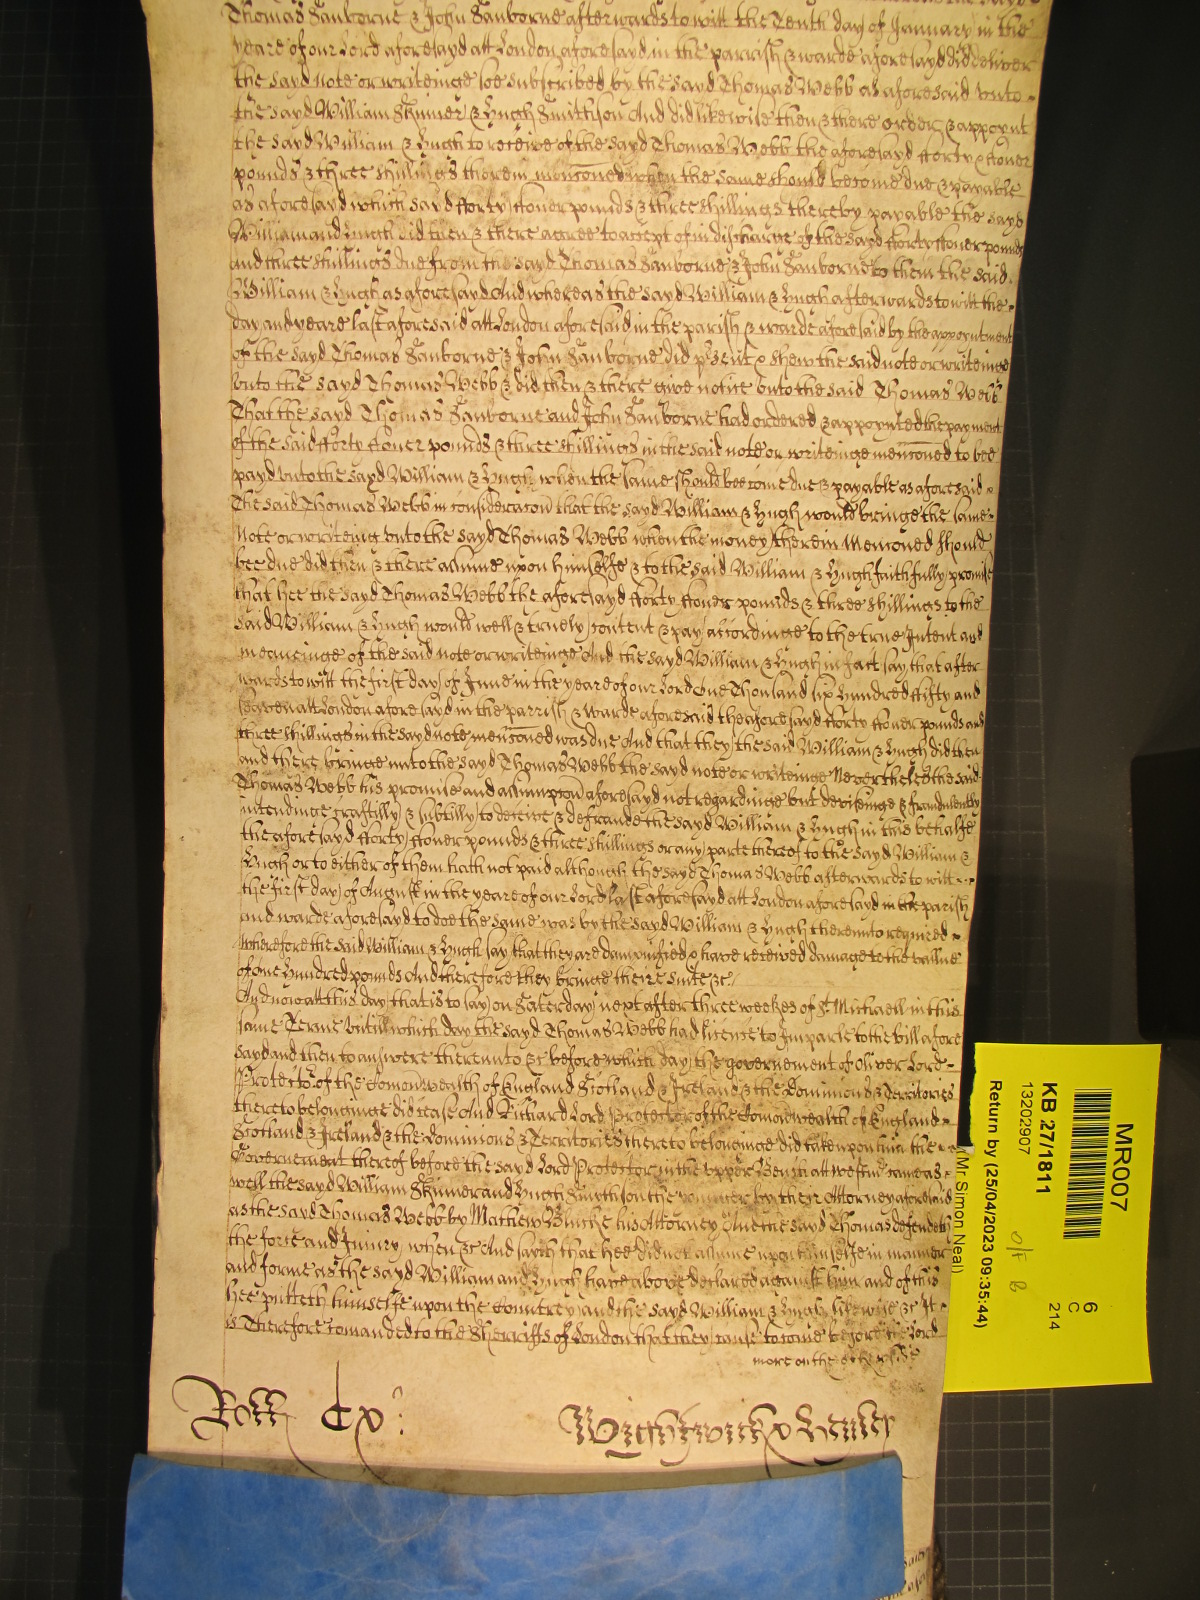 Thomas Sanborne & John Sanborne afterwards to witt the Tenth day of January in the
yeare of our Lord aforesayd att London aforesayd in the parrish & warde aforesayd did deliver
the sayd note or writeinge soe subscribed by the sayd Thomas Webb as aforesaid unto
the sayd William Skinner & Hugh Smithson And did likewise then & there order & appoynt
the sayd William & Hugh to receive of the sayd Thomas Webb the aforesayd fforty ffower
pounds & three shillings therein menconed when the same should become due & payable
as aforesayd which sayd fforty ffower pounds & three shillings thereby payable the sayd
William and Hugh did then & there agree to accept of in discharge of the sayd fforty ffower pounds
and three shillings due from the sayd Thomas Sanborne & John Sanborne to them the said
William & Hugh as aforesayd And whereas the sayd William & Hugh afterwards to witt the
day and yeare last aforesaid att London aforesaid in the parish & warde aforesaid by the appoyntment
of the sayd Thomas Sanborne & John Sanborne did psent & shew the said note or writeinge
unto the sayd Thomas Webb & did then & there give notice unto the said Thomas Webb
That the sayd Thomas Sanborne and John Sanborne had ordered & appoynted the payment
of the said fforty ffower pounds & three shillings in the said note or writeinge menconed to bee
payd unto the sayd William & Hugh when the same should become due & payable as aforesaid
The said Thomas Webb in consideracon that the sayd William & Hugh would bringe the same
Note or writeing unto the sayd Thomas Webb when the money therein menconed should
bee due did then & there assume upon himselfe & to the said William & Hugh faithfully promise
that hee the sayd Thomas Webb the aforesayd fforty ffower pounds & three shillings to the
said William & Hugh would well & truely content & pay accordinge to the true Intent and
meaninge of the said note or writeinge And the sayd William & Hugh in fact say that after
wards to witt the first day of June in the yeare of our Lord One Thousand six Hundred ffifty and
seaven att London aforesayd in the parrish & warde aforesaid the aforesayd fforty ffower pounds and
three shillings in the sayd note menconed was due And that they the said William & Hugh did then
and there bringe unto the sayd Thomas Webb the sayd note or writeinge Neverthelesse the said
Thomas Webb his promise and assumpcon aforesayd not regardinge but deviseinge & fraudulently
intendinge craftilly & subtilly to deceive & defraude the sayd William & Hugh in this behalfe
the aforesayd fforty ffower pounds & three shillings or any parte thereof to the sayd William &
Hugh or to either of them hath not paid although the sayd Thomas Webb afterwards to witt
the first day of August in the yeare of our Lord last aforesayd att London aforesayd in the parish
and warde aforesayd to doe the same was by the sayd William & Hugh thereunto required
Wherefore the said William & Hugh say that they are dampnified & have received damage to the vallue
of one Hundred pounds And therefore they bringe theire suite &c
And now att this day that is to say on Saterday next after three weekes of St Michaell in this
same Terme untill which day the sayd Thomas Webb had licence to Imparle to the bill afore
sayd and then to answere thereunto &c before which day the governement of Oliver Lord
Protector of the Comonwealth of England Scotland & Ireland & the Dominions & Territories
thereto belonginge did cease And Richard Lord Protector of the Comonwealth of England
Scotland & Ireland & the Dominions & Territories thereto belonginge did take upon him the
Governement thereof before the sayd Lord Protector in the upper Bench att Westmr came as
well the sayd William Skinner and Hugh Smithson by their Attorney aforesaid
as the sayd Thomas Webb by Mathew his Attorney And the sayd Thomas defendeth
the force and Injury when &c And sayth that hee did not assume upon himselfe in manner
and forme as the sayd William and Hugh have above declared against him and of this
hee putteth himselfe upon the Countrey and the sayd William & Hugh likewise &c It
is Therefore comanded to the Sherriffs of London that they cause to come before the Lord
more on the other side
Roll Cx
MR007
KB 27/1811
13202907
Return by (25/04/2023 09:35:44)
(Mr Simon Neal)
6
C
214